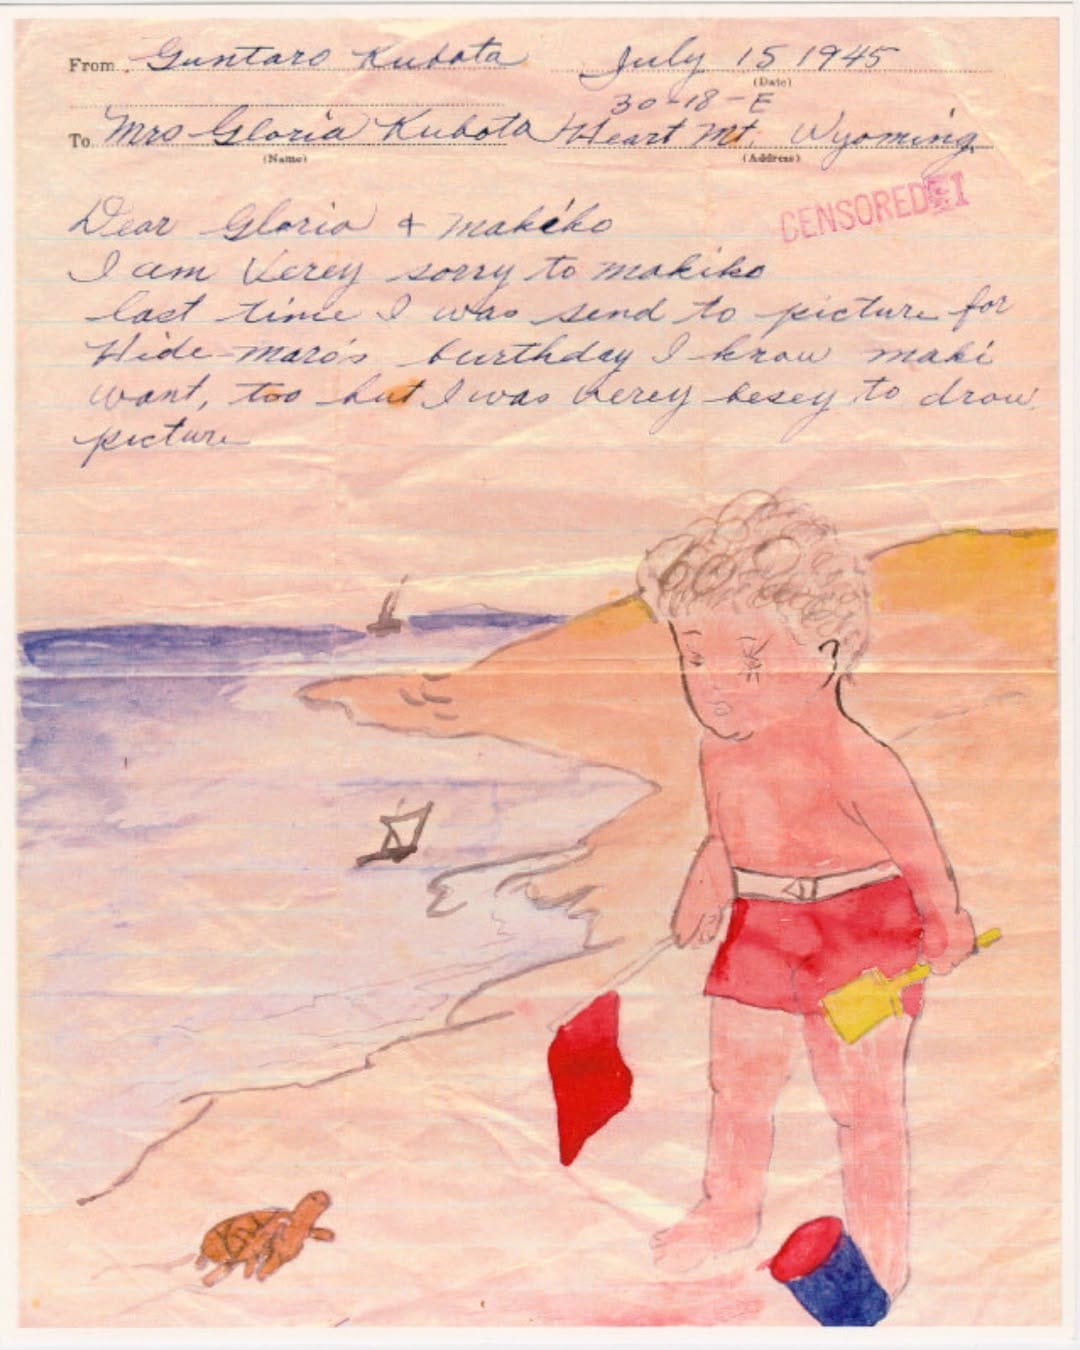 From Guntaro Kubota July 15 1945
(Date)
30-18-E
To Mrs Gloria Kubota Heart Mt. Wyoming
(Name) (Address)
CENSORED
Dear Gloria & Makiko
I am verey sorry to makiko
last time I was send to picture for
Hide-maro's burthday I know maki
want, too but I was verey besey to drow
picture